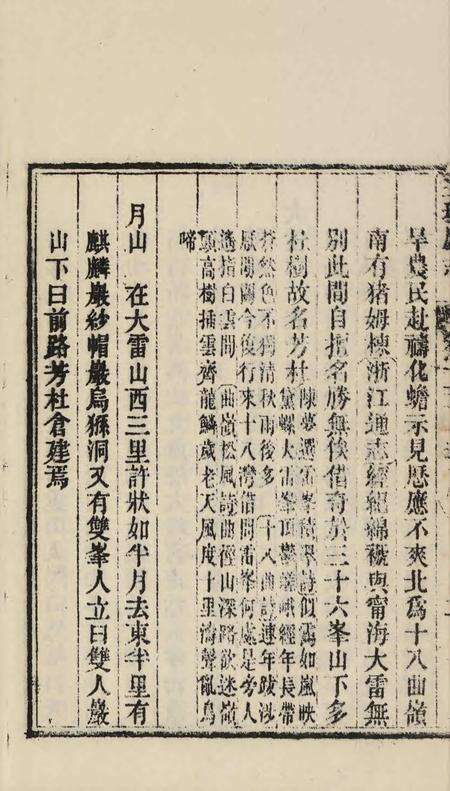 旱農民赴禱化蟾示見應不爽北為十八曲嶺
南有猪姆棟浙江通志經綿與甯海大雷無
別此間自擅名勝無俟借奇於三十六峯山下多
杜樹故名芳杜陳夢選雷峯積翠詩似靄如嵐映
黛螺大雷峯頂欝嵯峨經年長帶
蒼然色不獨清秋雨後多 十八曲詩連年跋涉
厭間關今復行來十八灣借問雷峯何處是旁人
遙指白雲間 曲嶺松風詩曲徑山深路欲迷嶺
頭高樹插雲齊龍鱗歲老天風度十里濤聲亂鳥
啼
月山 在大雷山西三里許狀如半月去東半里有
麒麟巖紗帽巖烏猻洞又有雙峯人立曰雙人巖
山下曰前路芳杜倉建焉